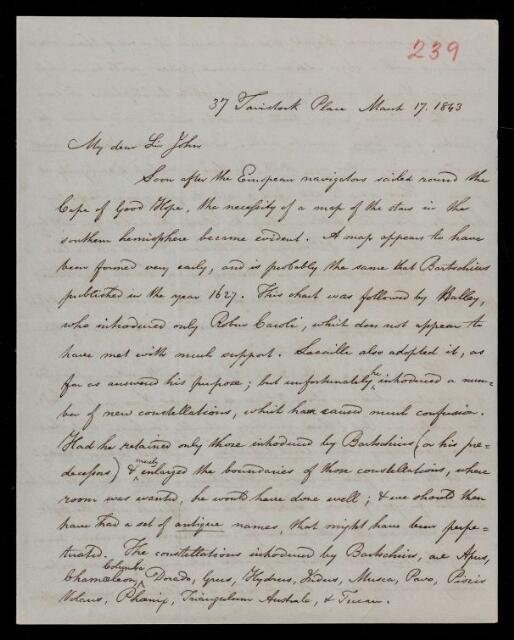 239
37 Tavistock Place March 17. 1843
My dear Sir John
Soon after the European navigators sailed round the
Cape of Good Hope, the necessity of a map of the stars in the
southern hemisphere became evident. A map appears to have
been formed very early, and is probably the same that Bartschius
published in the year 1627. This chart was followed by Halley,
who introduced only Robur Caroli, which does not appear to
have met with much support. Lacaille also adopted it, as
far as answered his purpose; but unfortunately he introduced a num-
ber of new constellations, which has caused much confusion.
Had he retained only those introduced by Bartschius (or his pre-
decessors) & merely enlarged the boundaries of those constellations, where
room was wanted, he would have done well; & we should then
have had a set of antique names, that might have been perpe-
tuated. The constellations introduced by Bartschius, are Apus,
Chamæleon, Columba Dorado, Grus, Hydrus, Indus, Musca, Pavo, Piscis
Volans, Phœnix, Triangulum Australe, & Tucan.